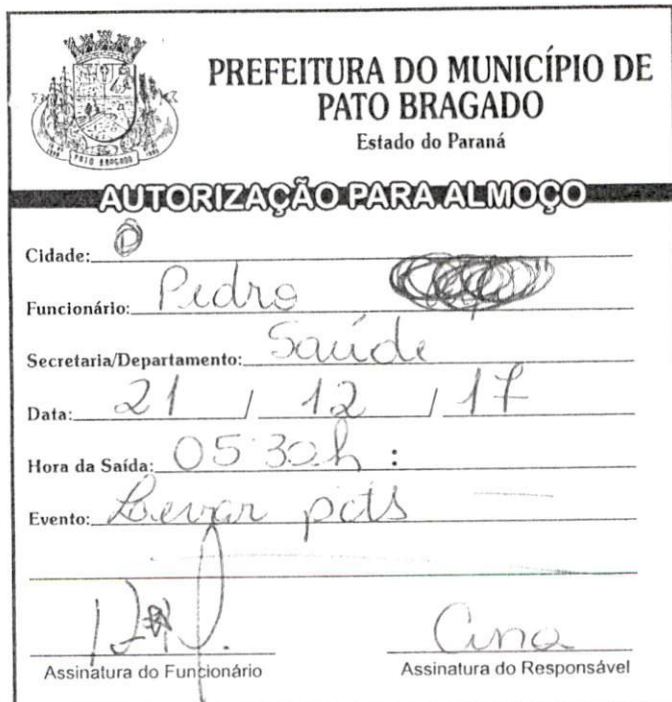 PREFEITURA DO MUNICÍPIO DE
PATO BRAGADO
Estado do Paraná
PATO BRAGADO
AUTORIZAÇÃO PARA ALMOÇO
Cidade:
Funcionário: Pedro
Secretaria/Departamento: Saúde
Data: 21 / 12 / 17
Hora da Saída: 05:30h :
Evento: Levar pcts
Ana
Assinatura do Funcionário Assinatura do Responsável